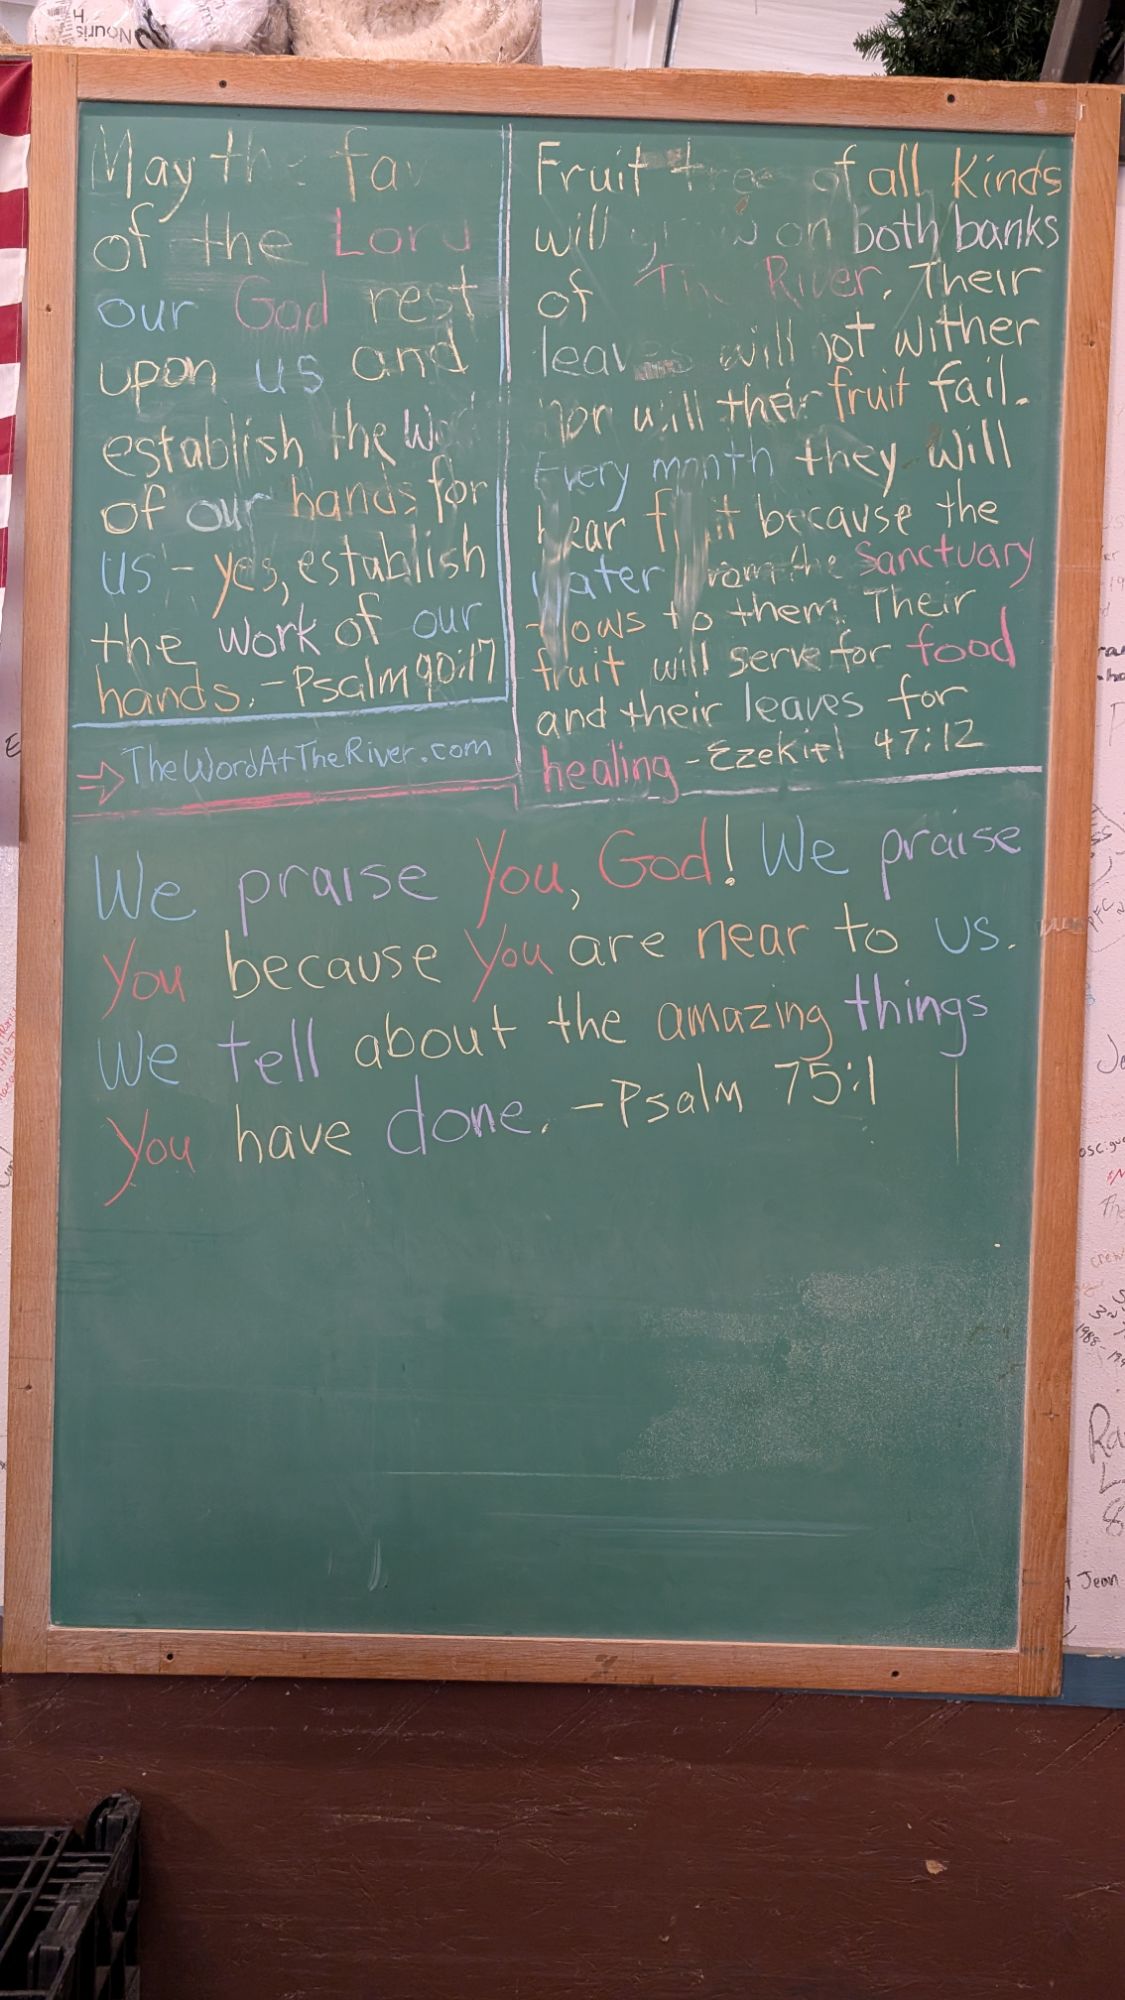 May the fav
of the Lord
our God rest
upon us and
establish the Wor
of our hands for
us - yes, establish
the work of our
hands. - Psalm 90:17
⇒ TheWordAtTheRiver.com
Fruit tree of all Kinds
will grow on both banks
of The River. Their
leaves will not wither
nor will their fruit fail.
Every month they will
bear fruit because the
water from the Sanctuary
flows to them. Their
fruit will serve for food
and their leaves for
healing - Ezekiel 47:12
We praise You, God! We praise
You because You are near to us.
We tell about the amazing things
You have done. - Psalm 75:1
Jean